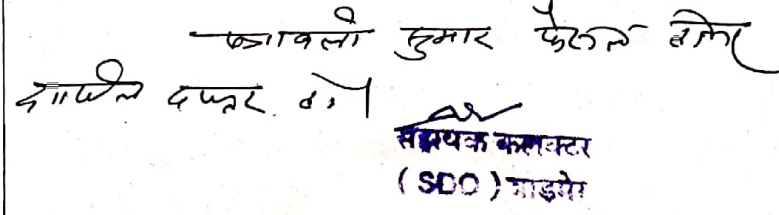 पत्रावली शुमार फैसल होकर
दाखिल दफ्तर हो।
सहायक कलक्टर
(SDO)